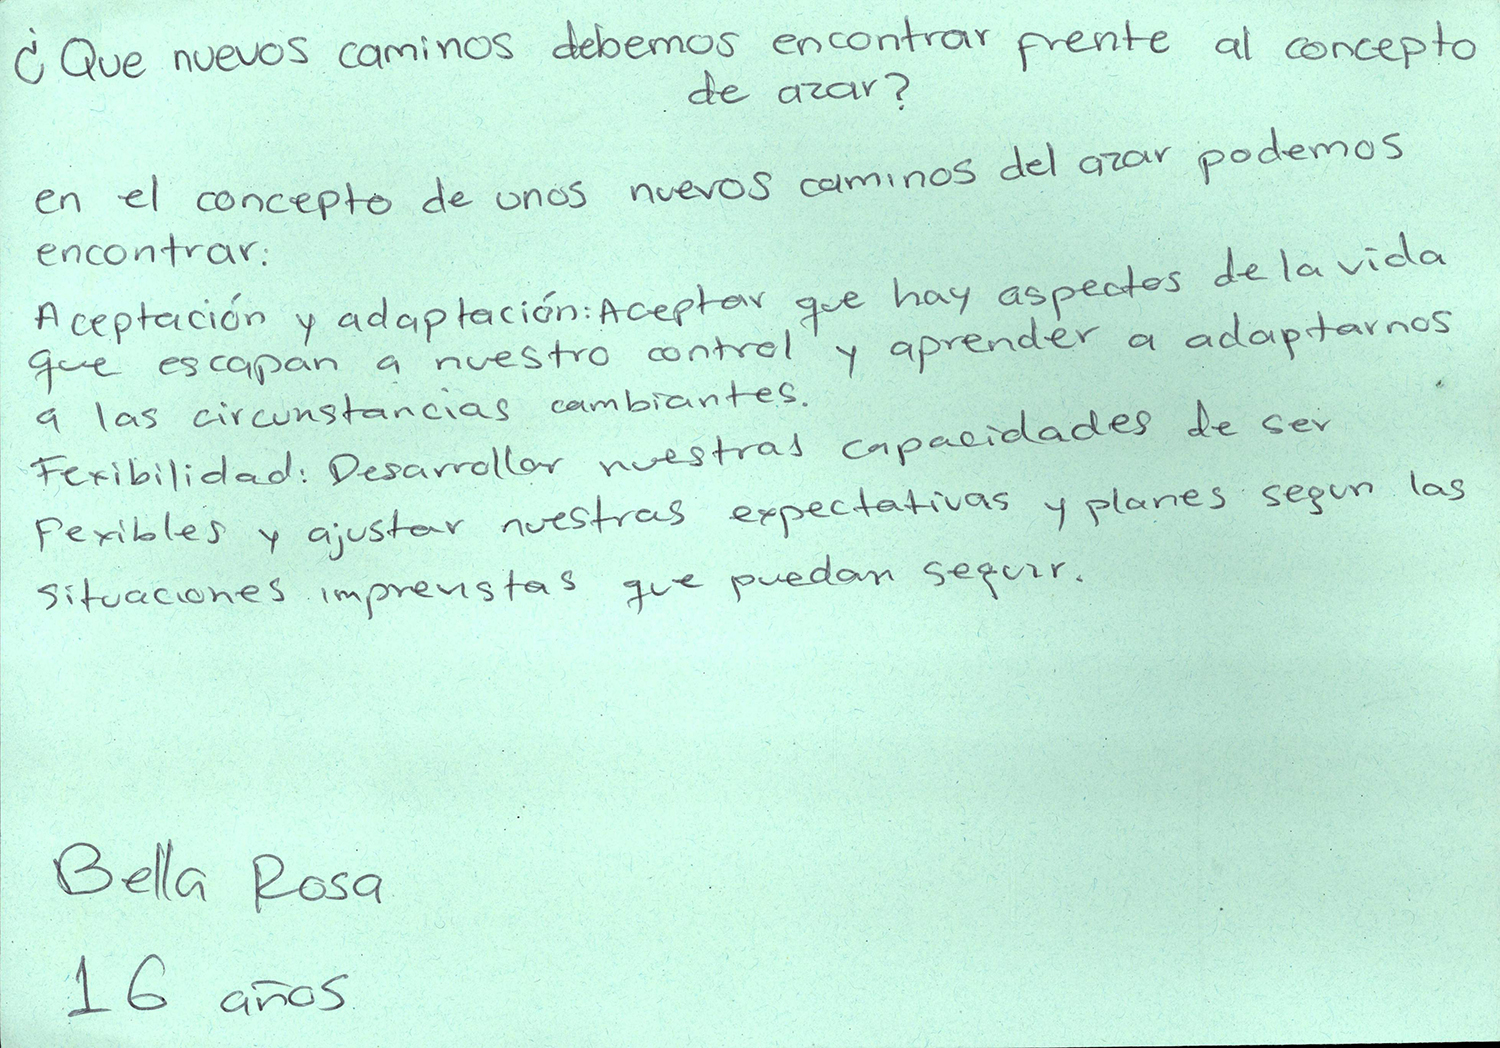 ¿Que nuevos caminos debemos encontrar frente al concepto
de azar?
en el concepto de unos nuevos caminos del azar podemos
encontrar:
Aceptación y adaptación: Aceptar que hay aspectos de la vida
que escapan a nuestro control y aprender a adaptarnos
a las circunstancias cambiantes.
Fexibilidad: Desarrollar nuestras capacidades de ser
fexibles y ajustar nuestras expectativas y planes segun las
situaciones imprevistas que puedan seguir.
Bella Rosa
16 años